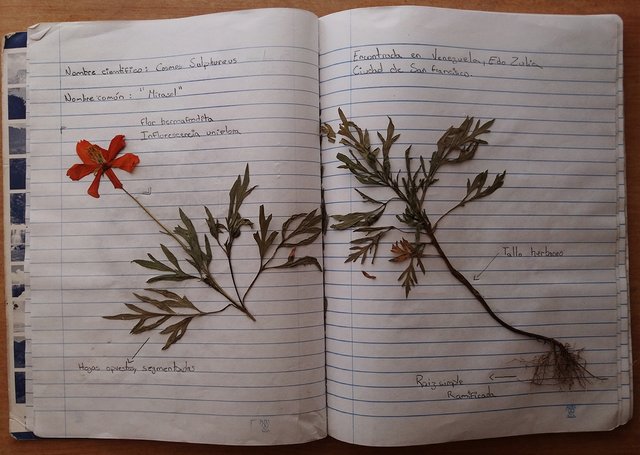 Nombre científico: Cosmos Sulphureus
Nombre común: "Mirasol"
Flor hermafrodita
Influrescencia uniflora
Hojas opuestas, segmentadas
Encontrada en Venezuela, Edo Zulia,
Ciudad de San Francisco.
Tallo herbaceo
Raiz simple
Ramificada